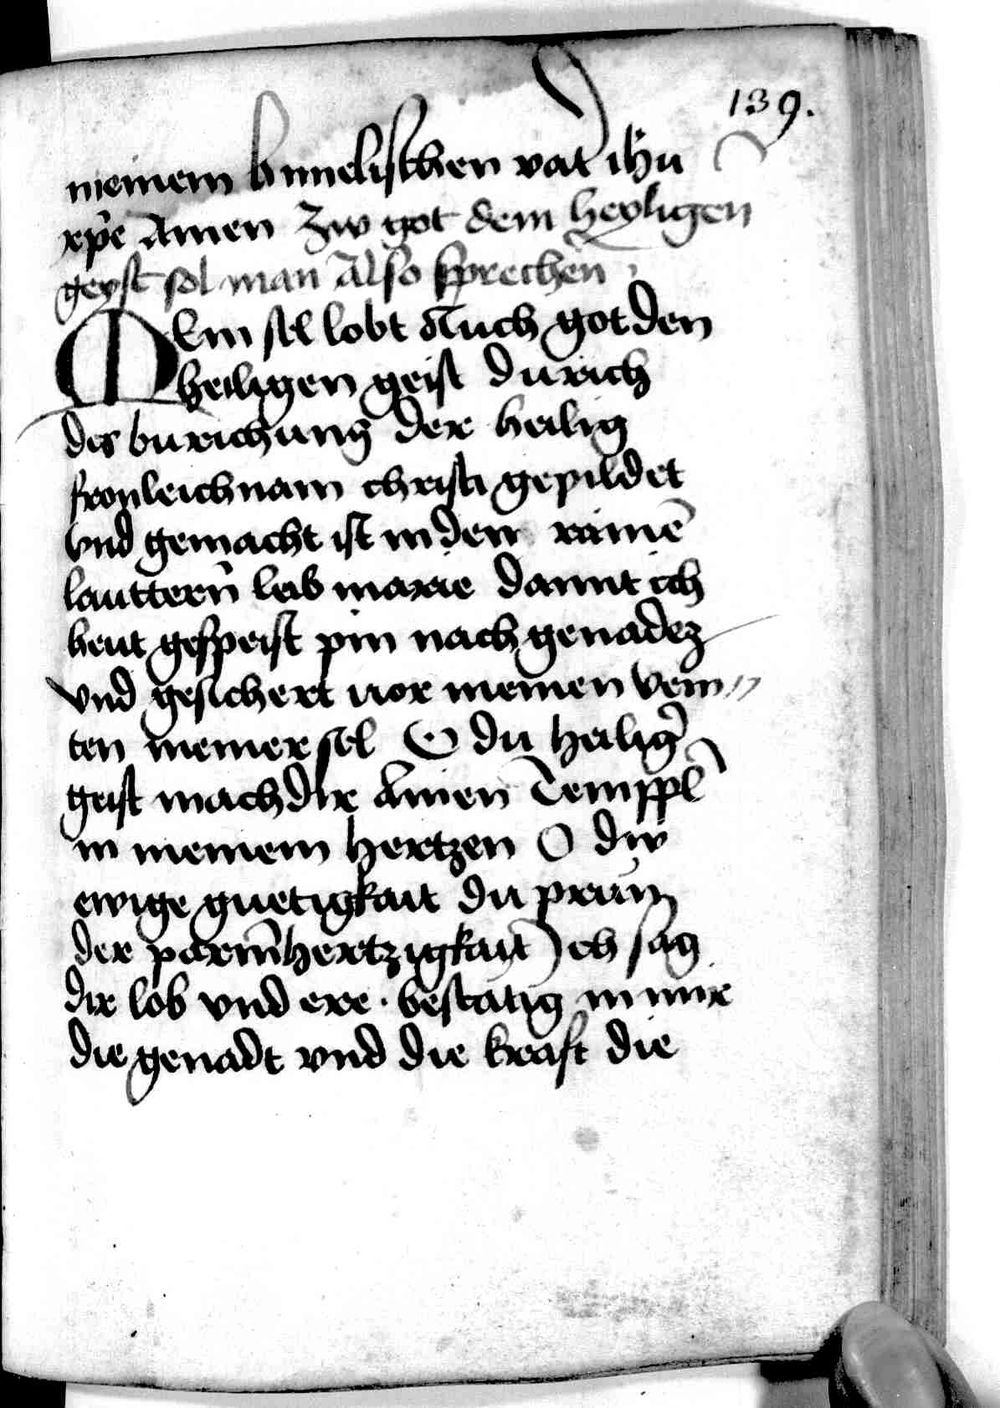 139.
meinem himelischen vat̄ ih̄u
xp̄e Amen Zw got dem heyligen
geyst sol man Also sprechen
Mein sel lobt Auch got den
heiligen geist durich
des burichung der heilig
fronleichnam christi gepildet
vnd gemacht ist in den rainē
lauttern̄ leib marie damit ich
heut gespeist pin nach genadez
vnd gesichert vor meinen vein〃
ten meiner sel O du heiliḡ
geist mach dir Ainen Temppl̄
in meinem hertzen O dw
ewige guetigkait du prun̄
der parm̄hertzigkait Ich sag
dir lob vnd ere · bestatig in mir
die genadt vnd die kraft die